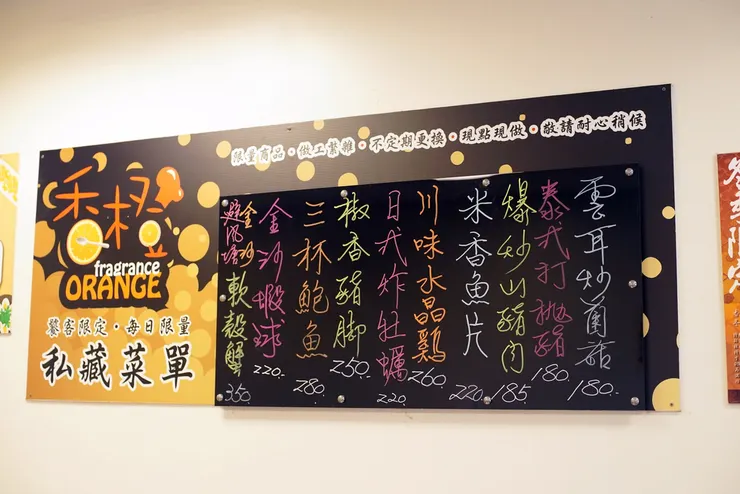 限量商品・做工繁雜・不定期更換・現點現做・敬請耐心稍候
香橙
fragrance
ORANGE
饕客限定・每日限量
私藏菜單
雲耳炒菌菇 180.
泰式打拋豬 180.
爆炒山豬肉 185
米香魚片 220.
川味水晶雞 260.
日式炸牡蠣 220.
椒香豬腳 250.
三杯鮑魚 280.
金沙蝦球 220.
金沙
避風塘
軟殼蟹 350.